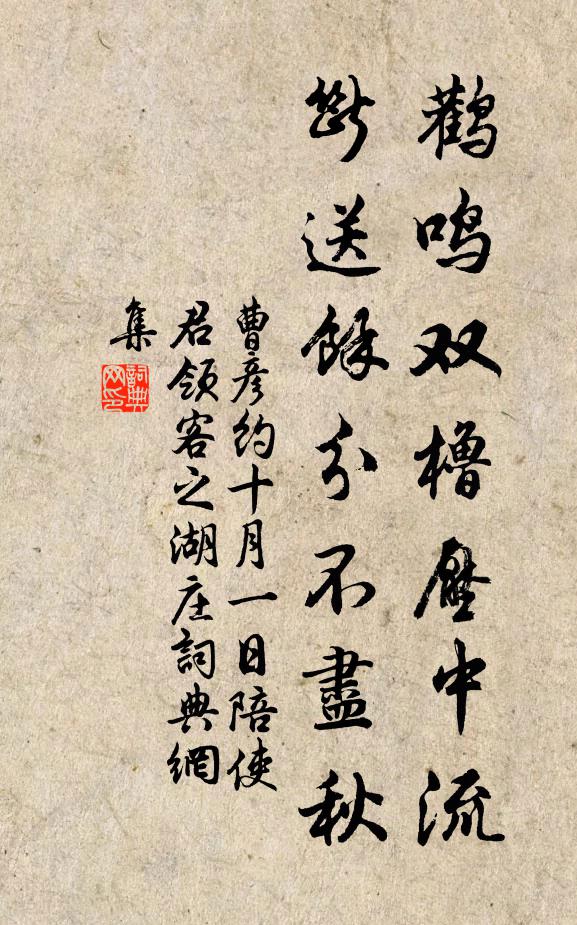 鹳鸣双橹压中流
断送馀分不盡秋
曹彦约十月一日陪使
君领客之湖庄詞典網
集
詞典
网印